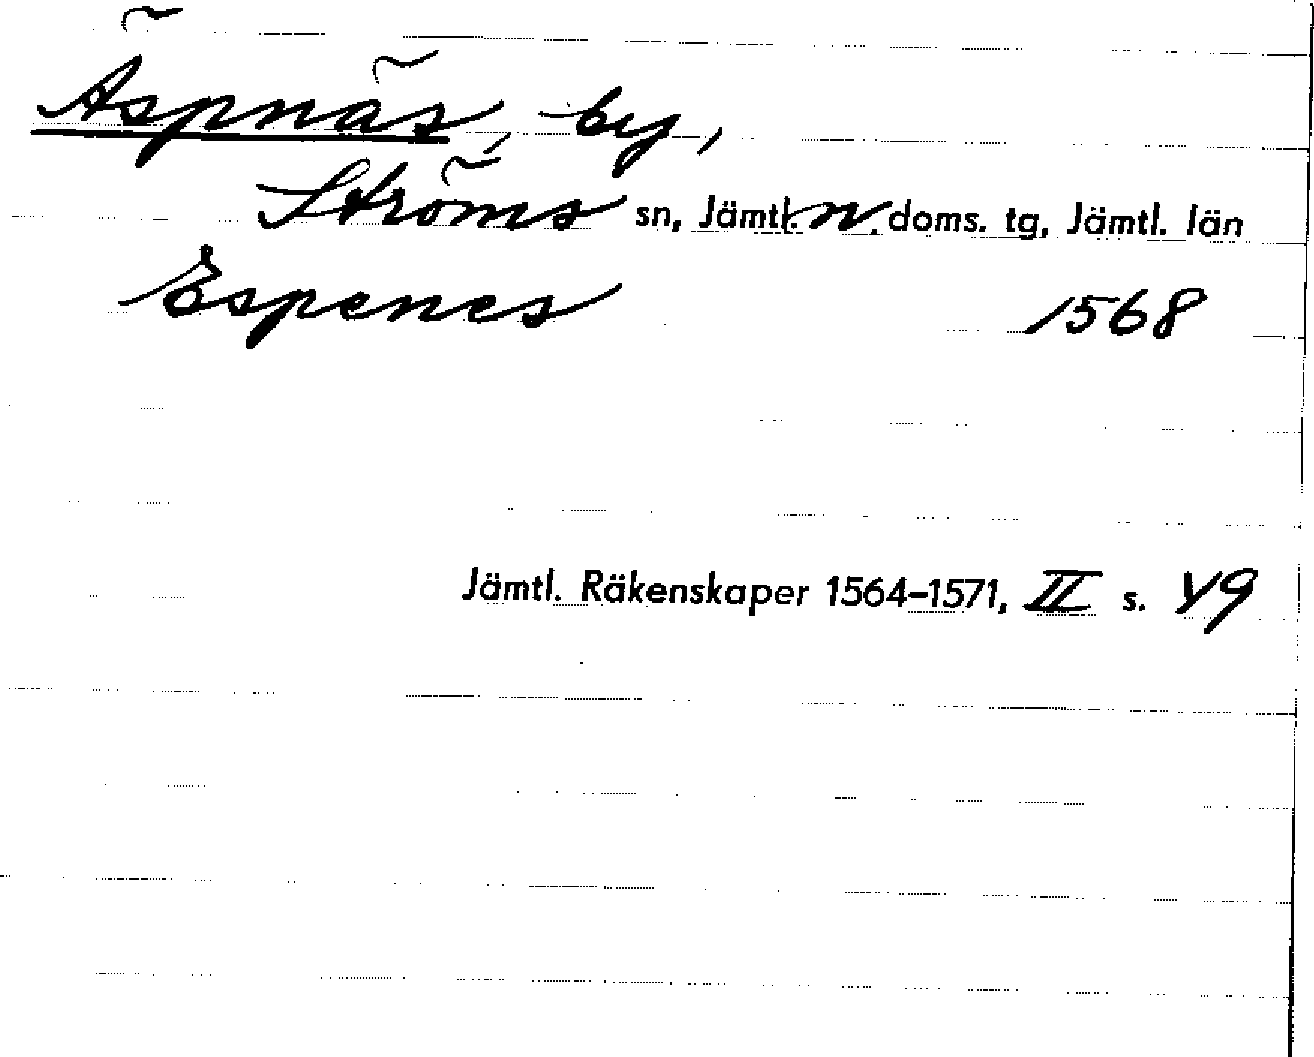 Äspnäs, by,
Ströms sn, Jämtl. n. doms. tg, Jämtl. län
Espenes 1568
Jämtl. Räkenskaper 1564–1571, II s. 49